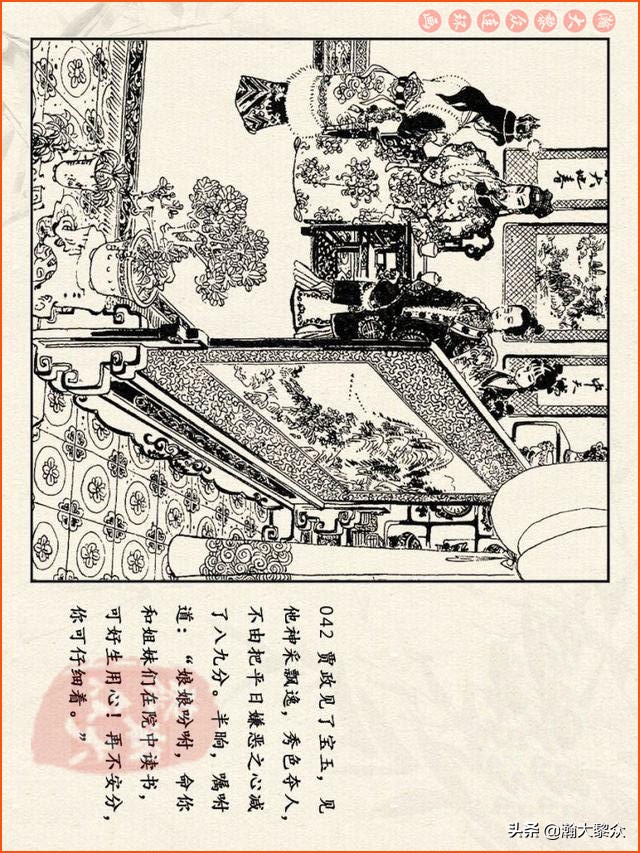 瀚大黎众连环画
042 贾政见了宝玉，见
他神采飘逸，秀色夺人，
不由把平日嫌恶之心减
了八九分。半晌，嘱咐
道：“娘娘吩咐，命你
和姐妹们在院中读书，
可好生用心！再不安分，
你可仔细着。”
头条 @瀚大黎众